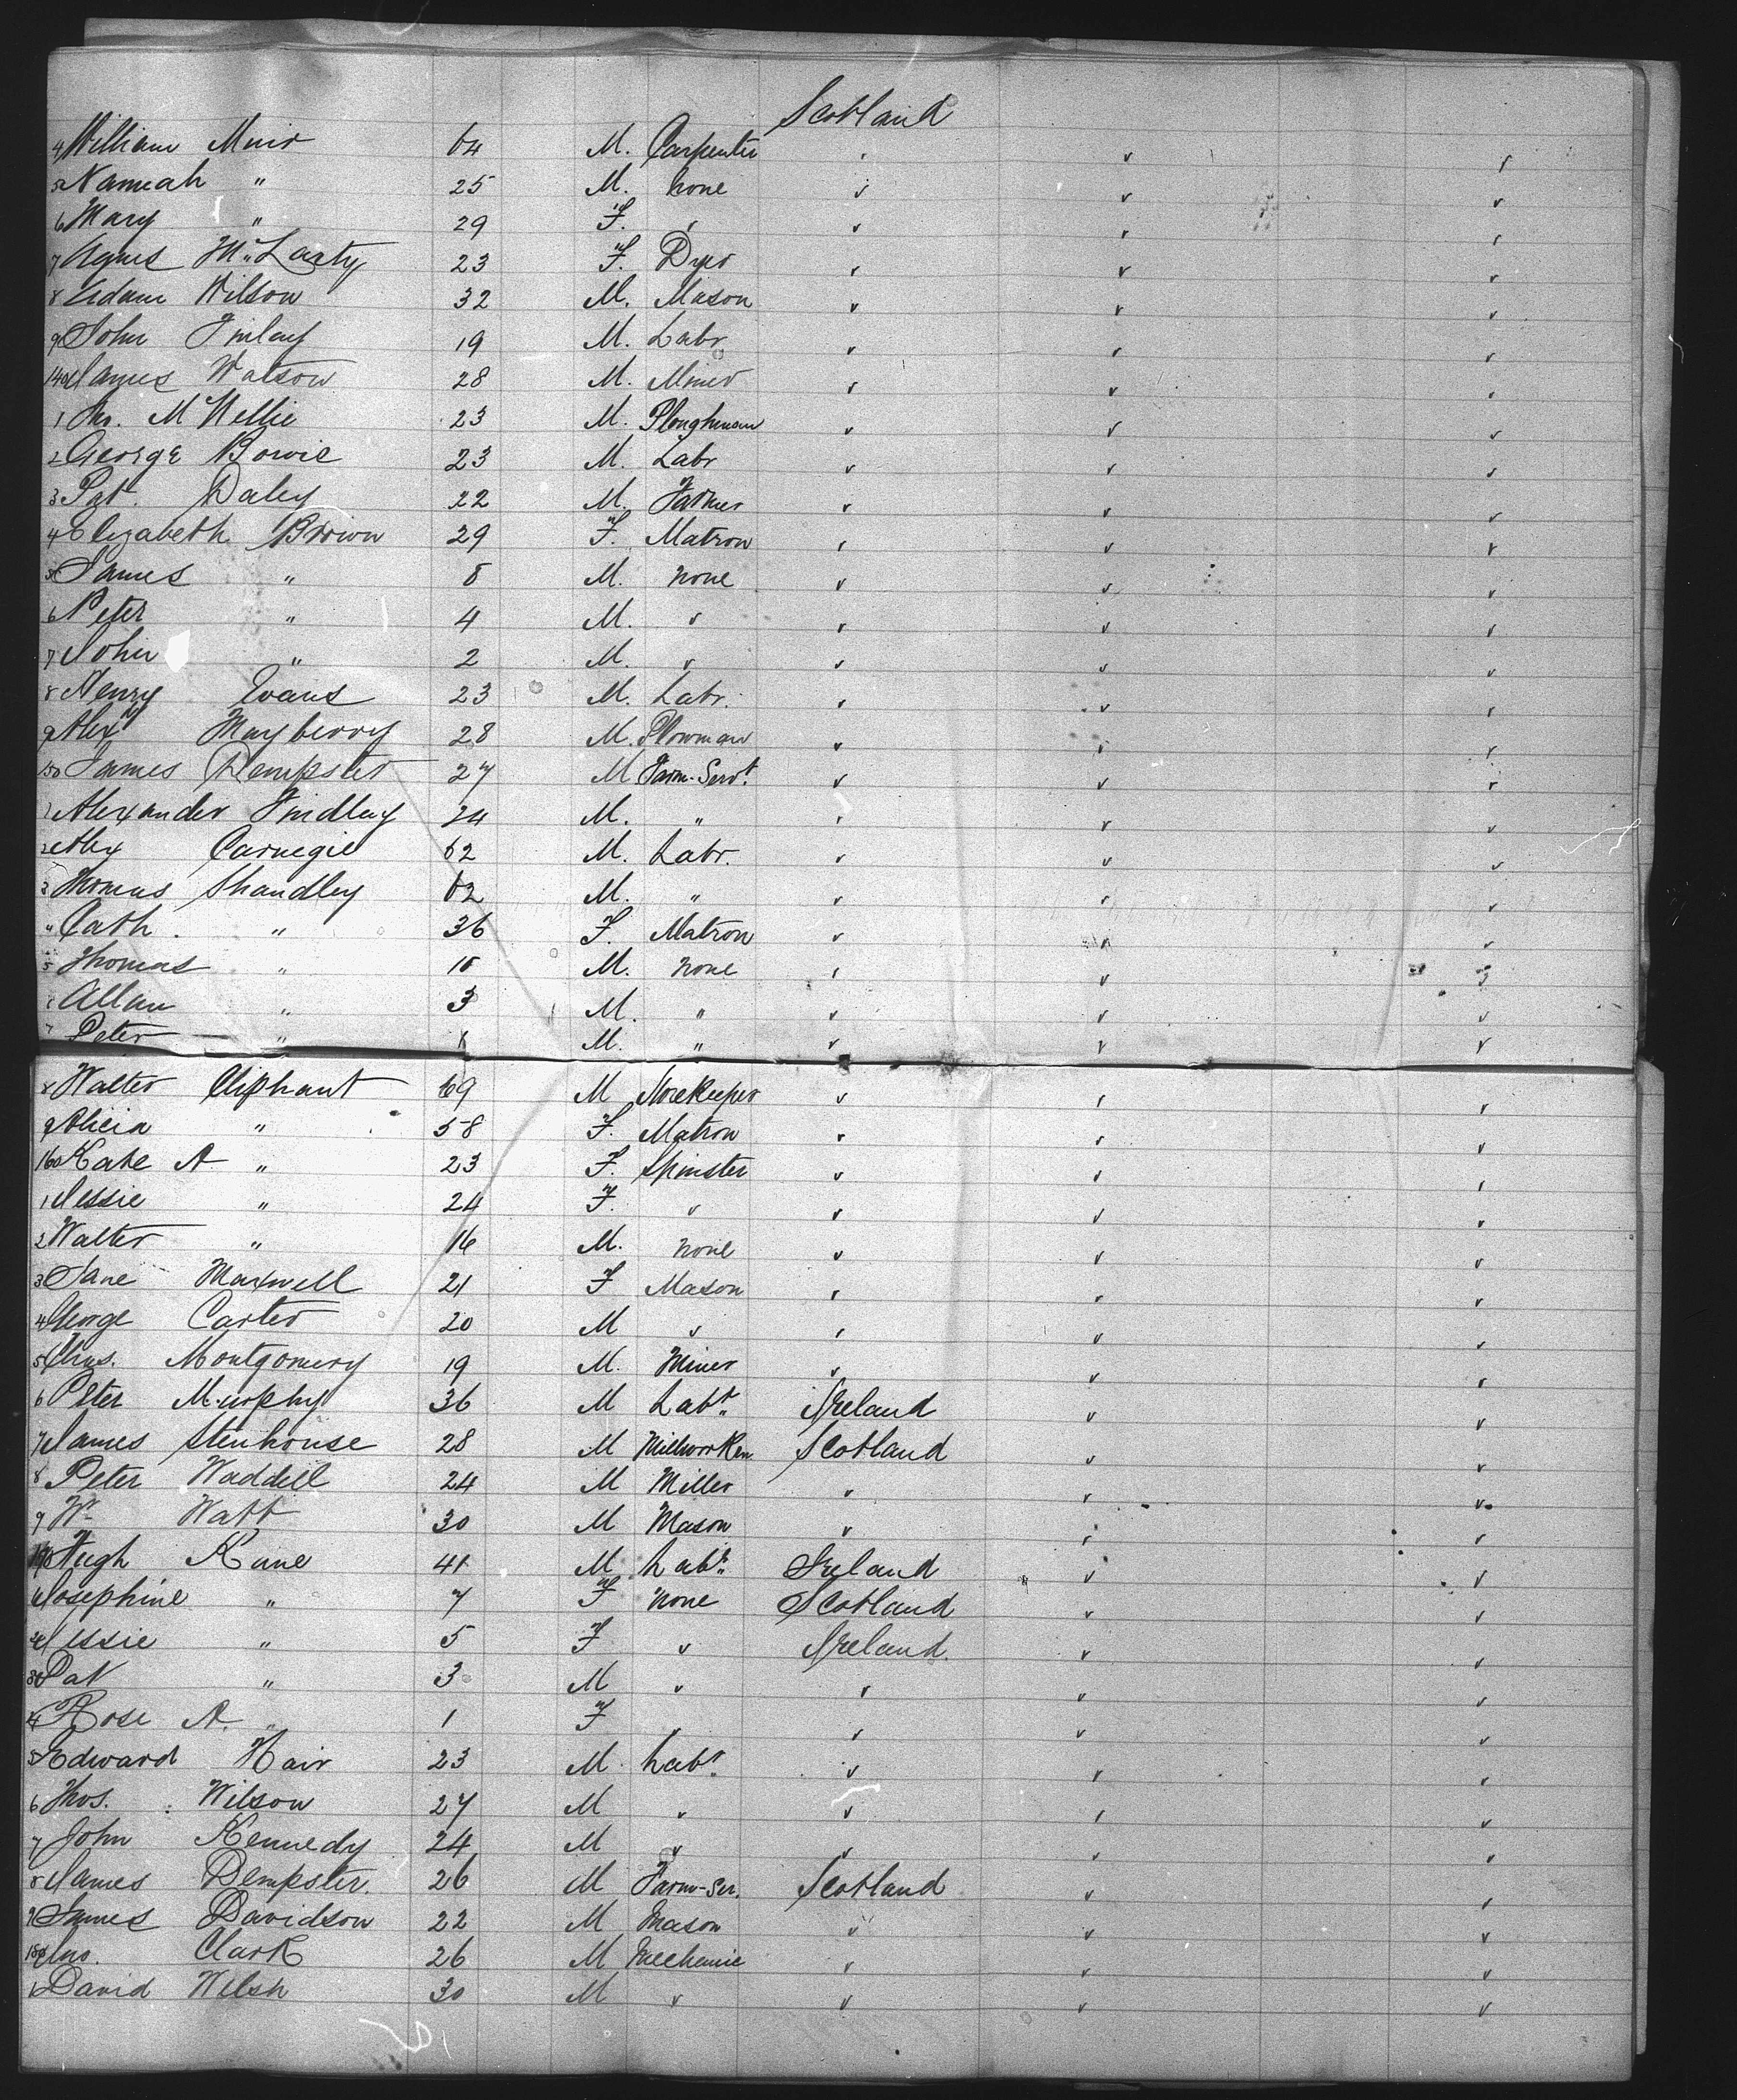 Scotland
4 William Muir 64 M. Carpenter " " "
5 Hannah " 25 M. none " " "
6 Mary " 29 F. " " " "
7 Agnes McLarty 23 F. Dyer " " "
8 Adam Wilson 32 M. Mason " " "
9 John Finlay 19 M. Labr " " "
140 James Watson 28 M. Miner " " "
1 Jno. McWellie 23 M. Ploughman " " "
2 George Bowie 23 M. Labr " " "
3 Pat. Daley 22 M. Farmer " " "
4 Elizabeth Brown 29 F. Matron " " "
5 James " 8 M. none " " "
6 Peter " 4 M. " " " "
7 John " 2 M. " " " "
8 Henry Evans 23 M. Labr. " " "
9 Alexr Mayberry 28 M. Plowman " " "
150 James Dempster 27 M Farm-Servt. " " "
1 Alexander Findlay 24 M. " " " "
2 Alex Carnegie 62 M. Labr. " " "
3 Thomas Shandley 62 M. " " " "
" Cath. " 36 F. Matron " " "
5 Thomas " 10 M. none " " "
6 Allan " 3 M. " " " "
7 Peter " 1 M. " " " "
8 Walter Oliphant 69 M Storekeeper " " "
9 Alicia " 58 F. Matron " " "
160 Kate A " 23 F. Spinster " " "
1 Jessie " 24 F. " " " "
2 Walter " 16 M. none " " "
3 Jane Maxwell 21 F Mason " " "
4 George Carter 20 M " " " "
5 Chas. Montgomery 19 M. Miner " " "
6 Peter Murphy 36 M Labr. Ireland " "
7 James Stenhouse 28 M Millworker Scotland " "
8 Peter Waddell 24 M Miller " " "
9 Wm Watt 30 M Mason " " "
170 Hugh Kane 41 M Labr. Ireland " "
1 Josephine " 7 F none Scotland " "
2 Jessie " 5 F " Ireland. " "
3 Pat " 3 M " " " "
4 Rose A. " 1 F " " " "
5 Edward Hair 23 M Labr. " " "
6 Thos. Wilson 27 M " " " "
7 John Kennedy 24 M " " " "
8 James Dempster. 26 M Farm-Ser. Scotland " "
9 James Davidson 22 M Mason " " "
180 Jno. Clark 26 M Mechanic " " "
1 David Welsh 30 M " " " "